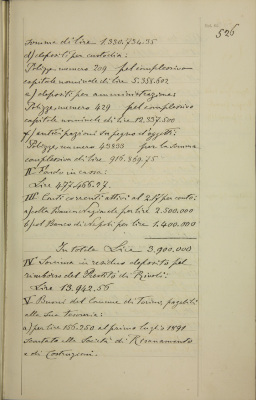 526
somme di lire 1.330.734.35
d) depositi per custodia:
Polizze numero 209 pel complessivo
capitale nominale di lire 5.358.502
e) depositi per amministrazione
Polizze numero 429 pel complessivo
capitale nominale di lire 12.337.500
f) anticipazioni su pegno d'oggetti:
Polizze numero 43833 per la somma
complessiva di lire 916.359.75
II° Fondo in cassa:
Lire 477.466.27.
III° Conti correnti attivi al 2 % per conto:
a) colla Banca per lire 2.500.000
b) col Banco di Napoli per lire 1.400.000
In totale Lire 3.900.000
IV° Somma in residuo deposito pel
rimborso del Prestito di Rivoli:
Lire 13.942.56
V° Buoni del Comune di Torino, pagabili
alla sua tesoreria:
a) per lire 166.250 al primo luglio 1891
scontato alla Società di Risanamento
e di Costruzioni.